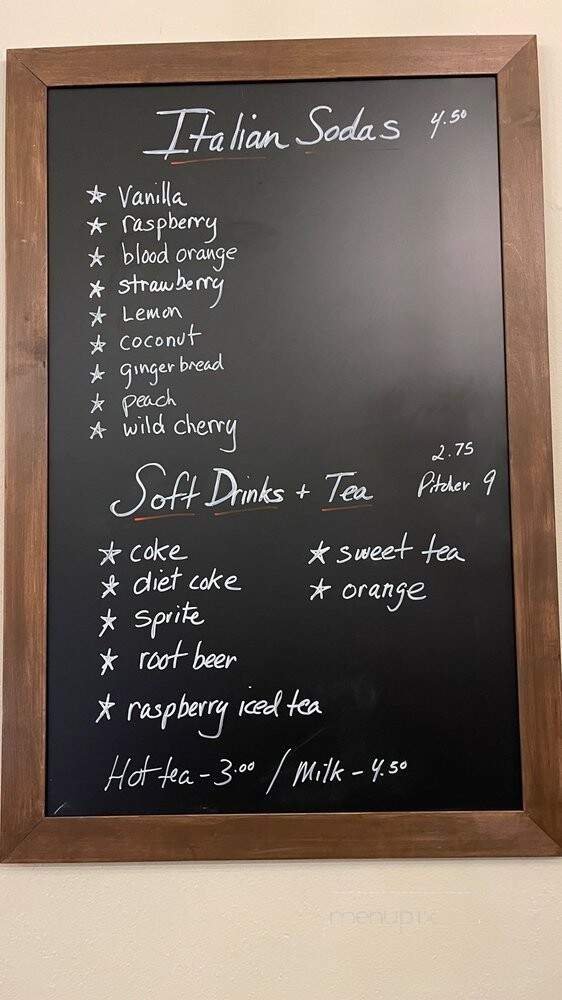 Italian Sodas 4.50
Vanilla
raspberry
blood orange
strawberry
Lemon
coconut
gingerbread
peach
wild cherry
2.75
Soft Drinks + Tea Pitcher 9
coke
diet coke
sprite
root beer
raspberry iced tea
sweet tea
orange
Hot tea - 3.00 / Milk - 4.50